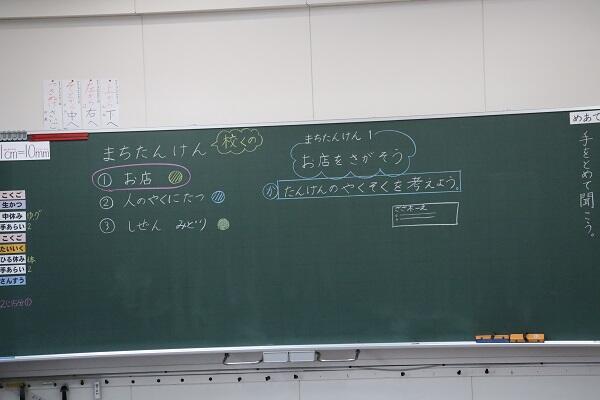 めあて
手をとめて聞こう。
まちたんけん 1
お店をさがそう
か たんけんのやくそくを考えよう。
まちたんけん 校くの
① お店
② 人のやくにたつ
③ しぜん みどり
1cm=10mm
こくご
生かつ
中休み
手あらい 2
こくご
たいいく
ひる休み 体
手あらい 2
さんすう